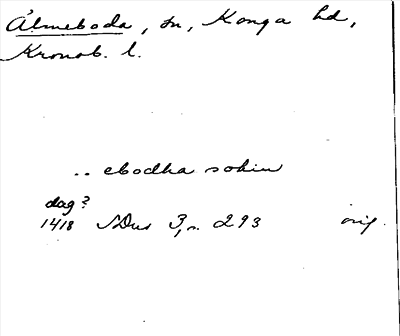 Älmeboda, sn, Konga hd,
Kronob. l.
.. ebodha sokin
dag?
1418 SDns 3, n. 293 orig.